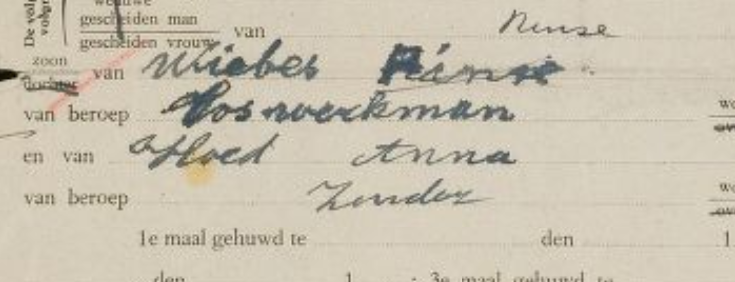 De vol
volgn
weduwe
gescheiden man
gescheiden vrouw van Rinse
zoon
dochter van Wiebes Rinse
van beroep Los werkman
en van Hoed Anna
van beroep Zonder
1e maal gehuwd te den 1
den 1 : 3e maal gehuwd te